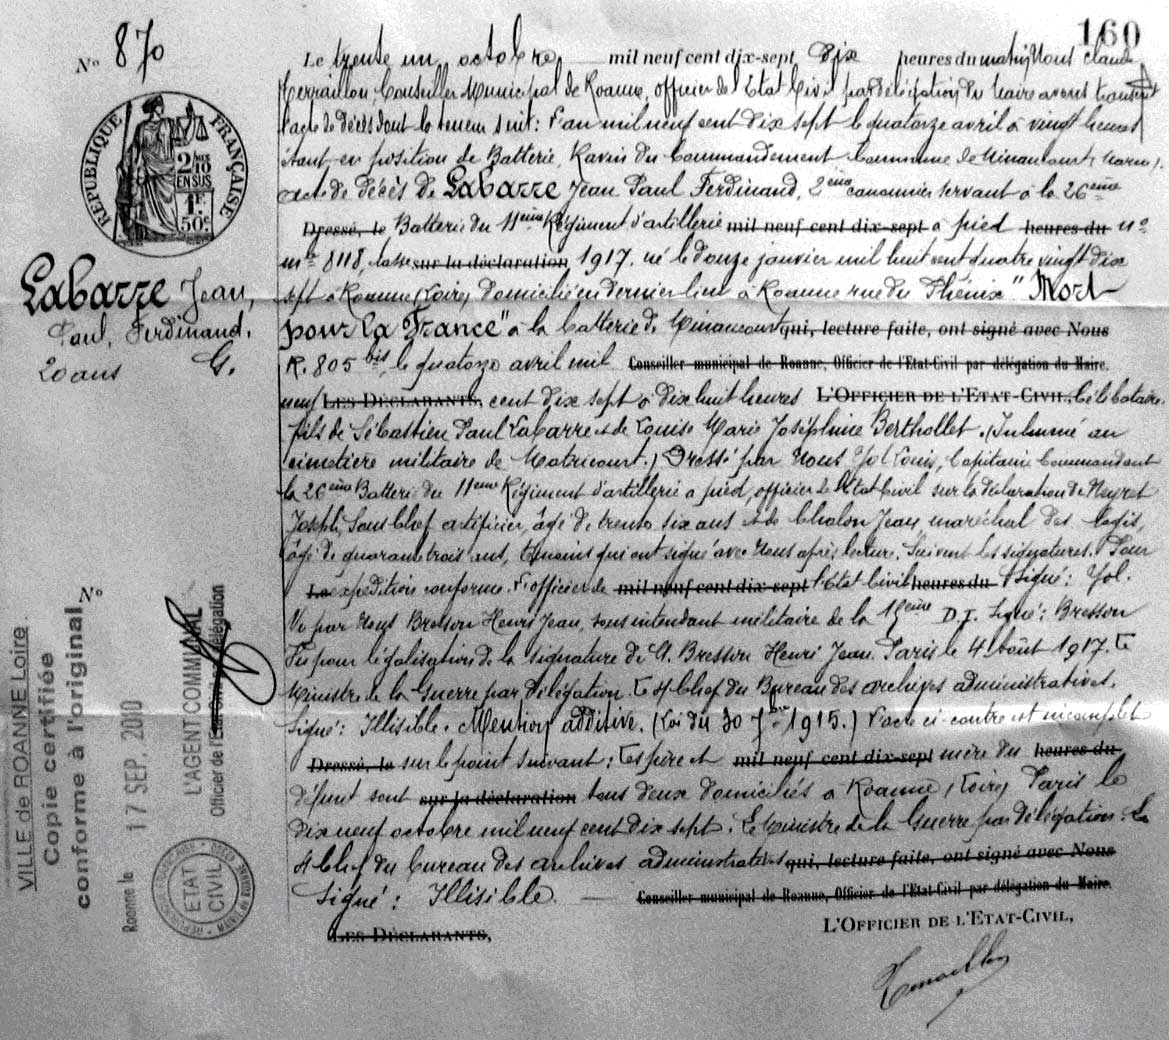 160
N° 870
RÉPUBLIQUE FRANÇAISE
2/10 EN SUS
1F. 50c.
Labarre Jean,
Paul, Ferdinand.
20 ans G.
Le trente un octobre mil neuf cent dix-sept dix heures du matin Nous Claude
Terraillon, Conseiller Municipal de Roanne, officier de l'Etat Civil par délégation du Maire avons transcrit
l'acte de décès dont la teneur suit: L'an mil neuf cent dix sept le quatorze avril à vingt heures
étant en position de Batterie, Ravin du Commandement Commune de Minaucourt, Marne).
acte de décès de Labarre Jean Paul Ferdinand, 2ème canonnier servant à la 26ème
Dressé, le Batterie du 11ème Régiment d'artillerie mil neuf cent dix-sept à pied heures du n°
mle 8118, classe sur la déclaration 1917. né le douze janvier mil huit cent quatre vingt dix
sept à Roanne (Loire) domicilié en dernier lieu à Roanne rue du Phénix "Mort
pour la France" à la batterie de Minaucourt qui, lecture faite, ont signé avec Nous
R. 805 bis, le quatorze avril mil Conseiller municipal de Roanne, Officier de l'Etat-Civil par délégation du Maire.
neuf LES DÉCLARANTS, cent dix sept à dix huit heures L'OFFICIER DE L'ETAT-CIVIL, Célibataire.
fils de Sébastien Paul Labarre et de Louise Marie Joséphine Berthollet. (Inhumé au
cimetière militaire de Matricourt.) Dressé par Nous Yol Louis, Capitaine Commandant
la 26ème Batterie du 11ème Régiment d'artillerie à pied, officier de l'Etat Civil sur la déclaration de Pleyret
Joseph, Sous Chef artificier, âgé de trente six ans et de Chalon Jean maréchal des logis,
âgé de quarante trois ans, témoins qui ont signé avec Nous après lecture. Suivent les signatures. Pour
Le expédition conforme. L'officier de mil neuf cent dix-sept l'Etat Civil heures du Signé: Yol.
Vu par Nous Bresson Henri Jean, sous intendant militaire de la 15ème D.I. Signé: Bresson
Vu pour légalisation de la signature de M. Bresson Henri Jean. Paris le 4 Août 1917. Le
Ministre de la Guerre par délégation. Le Chef du Bureau des archives administratives.
Signé: Illisible. Mention additive. (Loi du 30 7bre 1915.) L'acte ci-contre est incomplet
Dressé, le sur le point suivant: Les père et mil neuf cent dix-sept mère du heures du
défunt sont sur la déclaration tous deux domiciliés à Roanne (Loire) Paris le
dix neuf octobre mil neuf cent dix sept. Le Ministre de la Guerre par délégation. Le
Chef du bureau des archives administratives qui, lecture faite, ont signé avec Nous
Signé: Illisible. — Conseiller municipal de Roanne, Officier de l'Etat-Civil par délégation du Maire.
LES DÉCLARANTS, L'OFFICIER DE L'ETAT-CIVIL,
Terraillon
N°
VILLE de ROANNE Loire.
Copie certifiée
conforme à l'original
Roanne le 17 SEP. 2010
L'AGENT COMMUNAL
Officier de l'Etat Civil par délégation
ETAT CIVIL